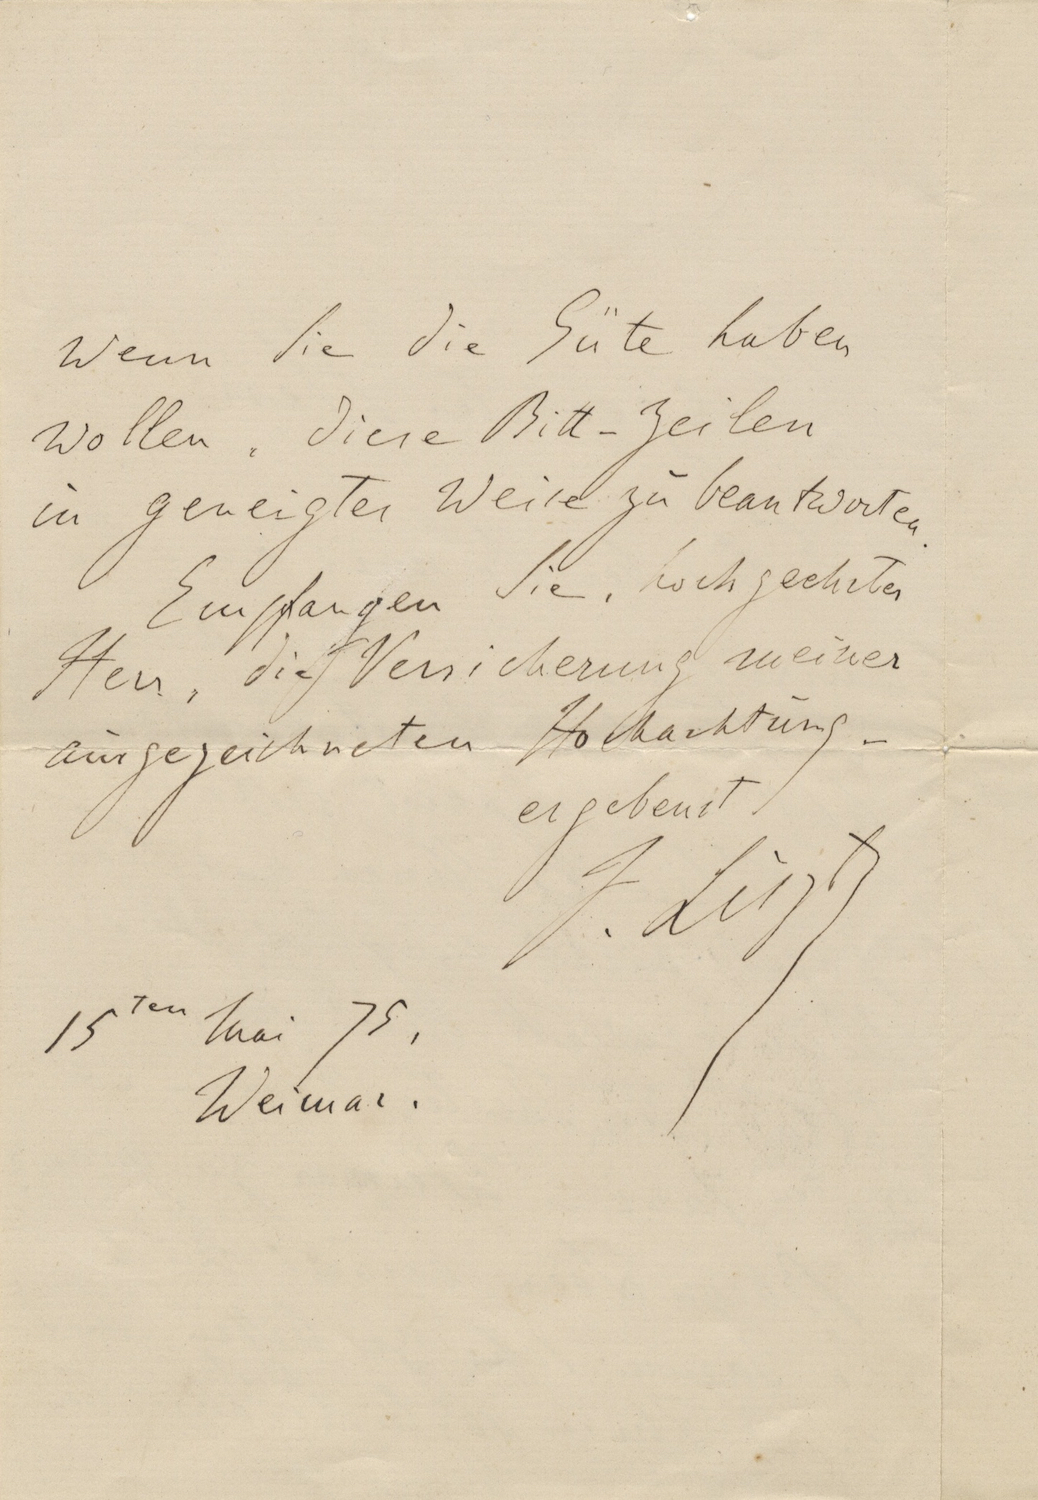 Wenn Sie die Güte haben
wollen, diese Bitt-Zeilen
in geneigter Weise zu beantworten.
Empfangen Sie, hochgeehrter
Herr, die Versicherung meiner
ausgezeichneten Hochachtung –
ergebenst
F. Liszt
15ten Mai 75,
Weimar.